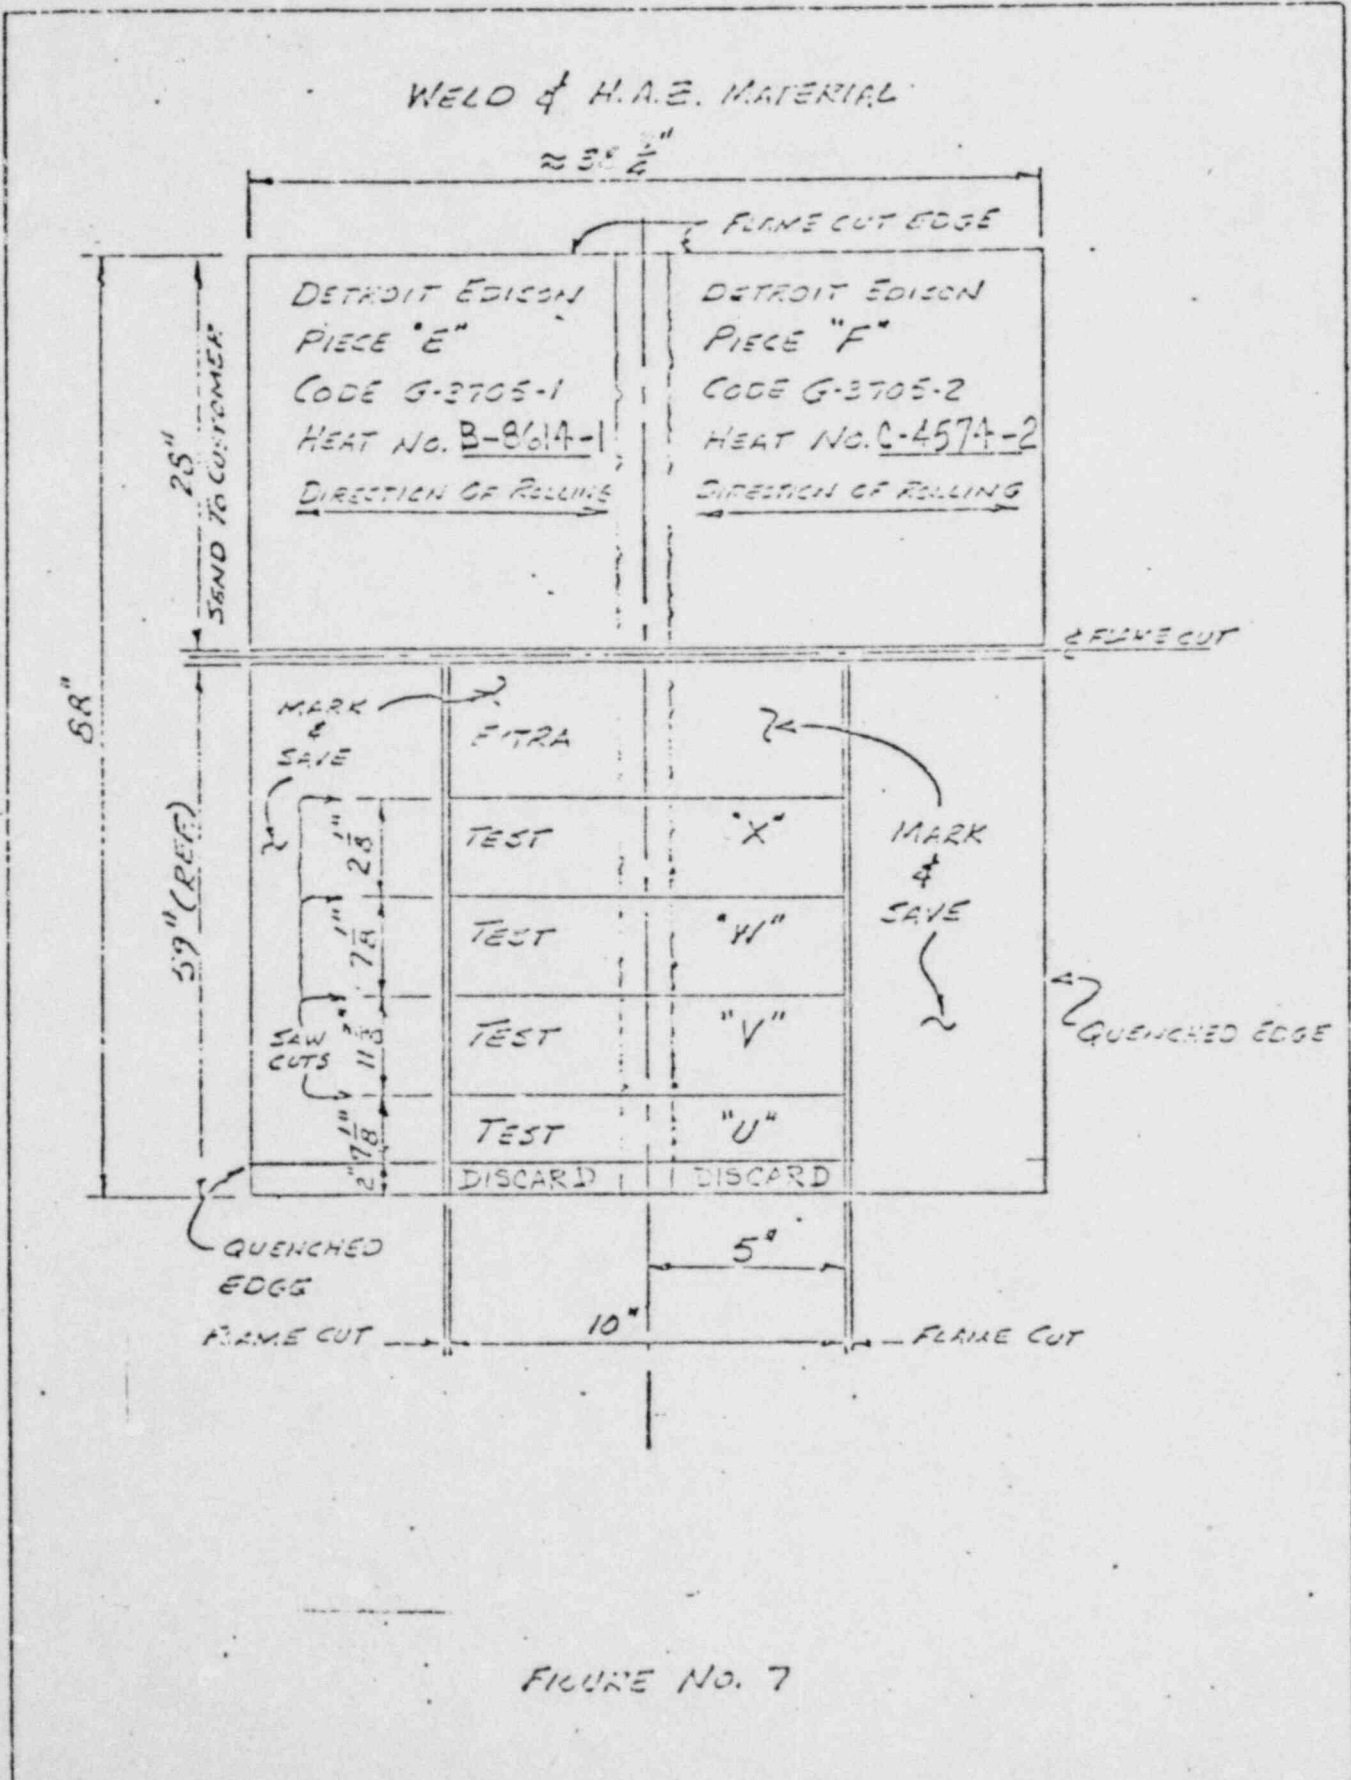 WELD & H.A.Z. MATERIAL
FLAME CUT EDGE
DETROIT EDISON
PIECE "E"
CODE G-3705-1
HEAT NO. B-8614-1
DIRECTION OF ROLLING
DETROIT EDISON
PIECE "F"
CODE G-3705-2
HEAT NO. C-4574-2
DIRECTION OF ROLLING
SEND TO CUSTOMER
88"
59" (REF)
FLAME CUT
MARK
&
SAVE
EXTRA
TEST "X"
TEST "W"
TEST "V"
TEST "U"
DISCARD DISCARD
2 1/8"
7 1/8"
7 1/8"
2"
SAW
CUTS
MARK
&
SAVE
QUENCHED EDGE
QUENCHED
EDGE
5"
10"
FLAME CUT
FLAME CUT
FIGURE NO. 7